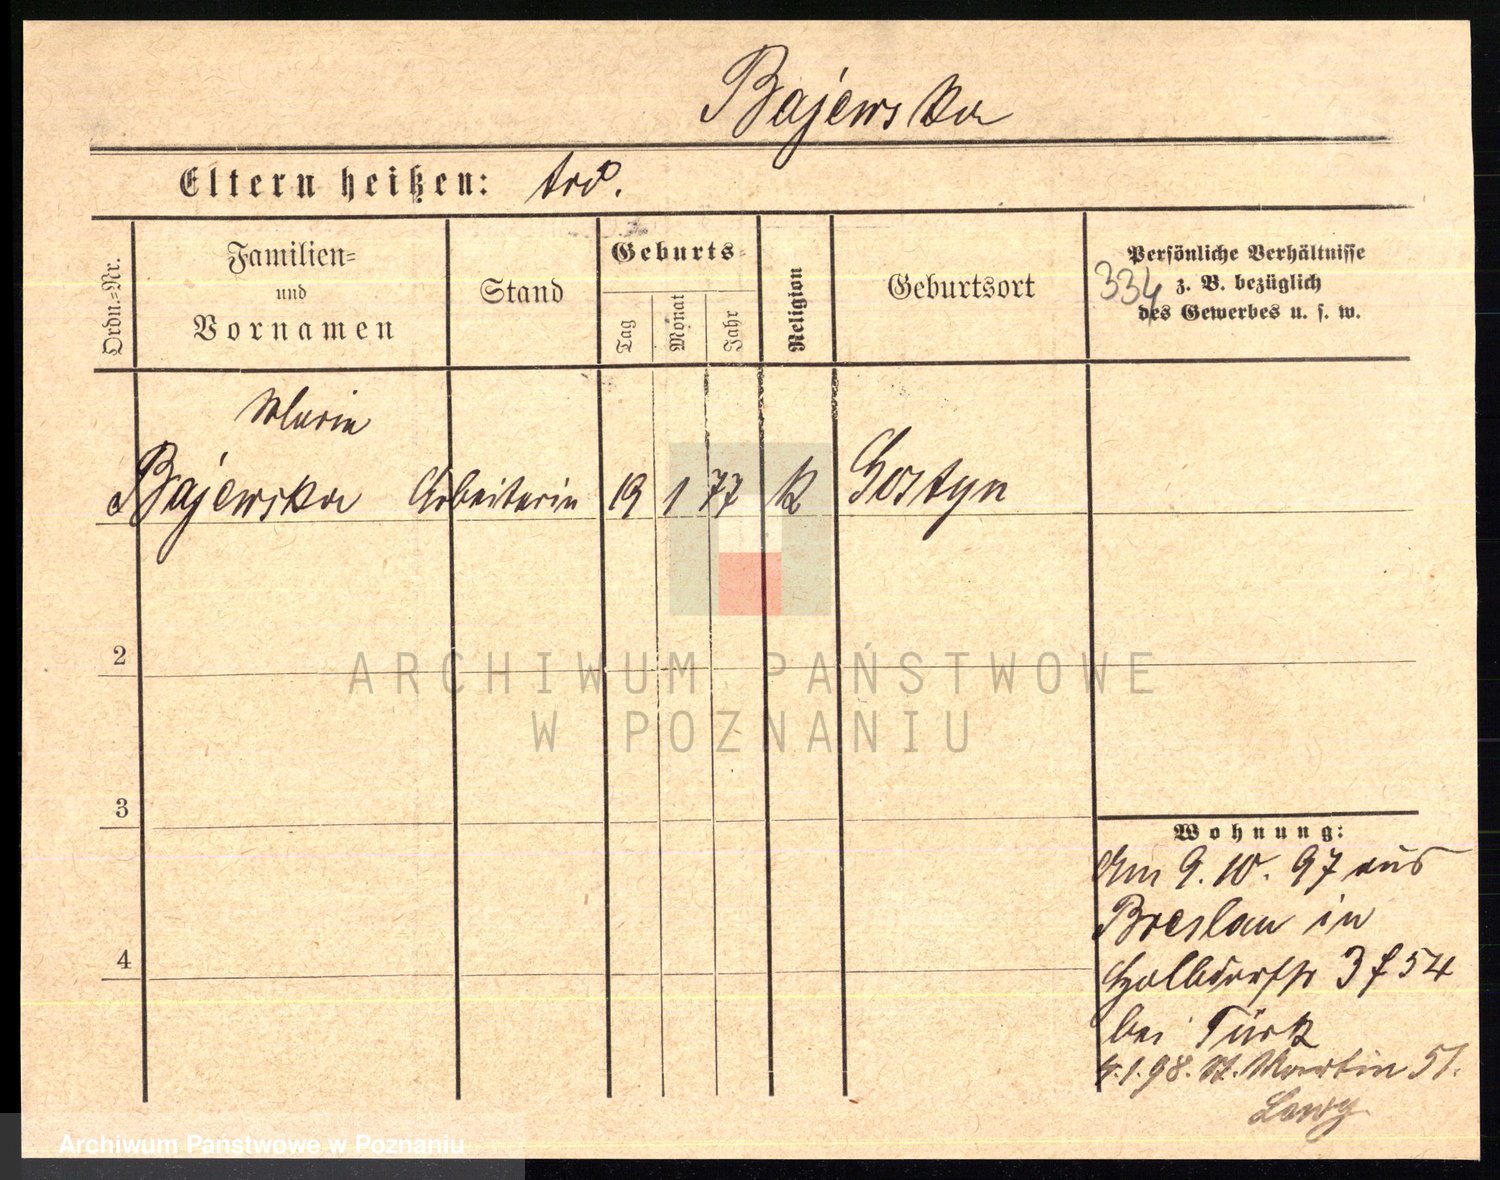 Bajewska
Eltern heißen: tod.
Ordn.=Nr.
Familien=
und
Vornamen
Stand
Geburts=
Tag
Monat
Jahr
Religion
Geburtsort
Persönliche Verhältnisse
z. B. bezüglich
des Gewerbes u. s. w.
334
Maria
Bajewska Arbeiterin 19 1 77 k Gostyn
2
3
4
Wohnung:
Am 9. 10. 97 aus
Breslau in
Halbdorfstr 3 f 54
bei Türk
4.1.98. St. Martin 51.
Lewy
ARCHIWUM PAŃSTWOWE
W POZNANIU
Archiwum Państwowe w Poznaniu